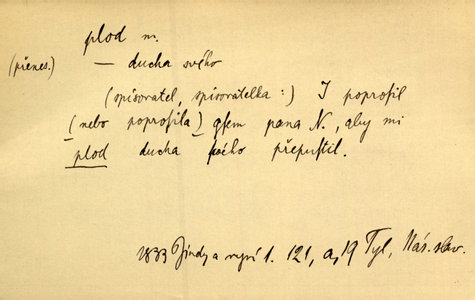 plod m.
(přenes.) — ducha svého
(spisovatel, spisovatelka:) I poprosil
(nebo poprosila) gsem pana N., aby mi
plod ducha swého přepustil.
1833 Jindy a nyní 1. 121, Tyl, Nár. slav.